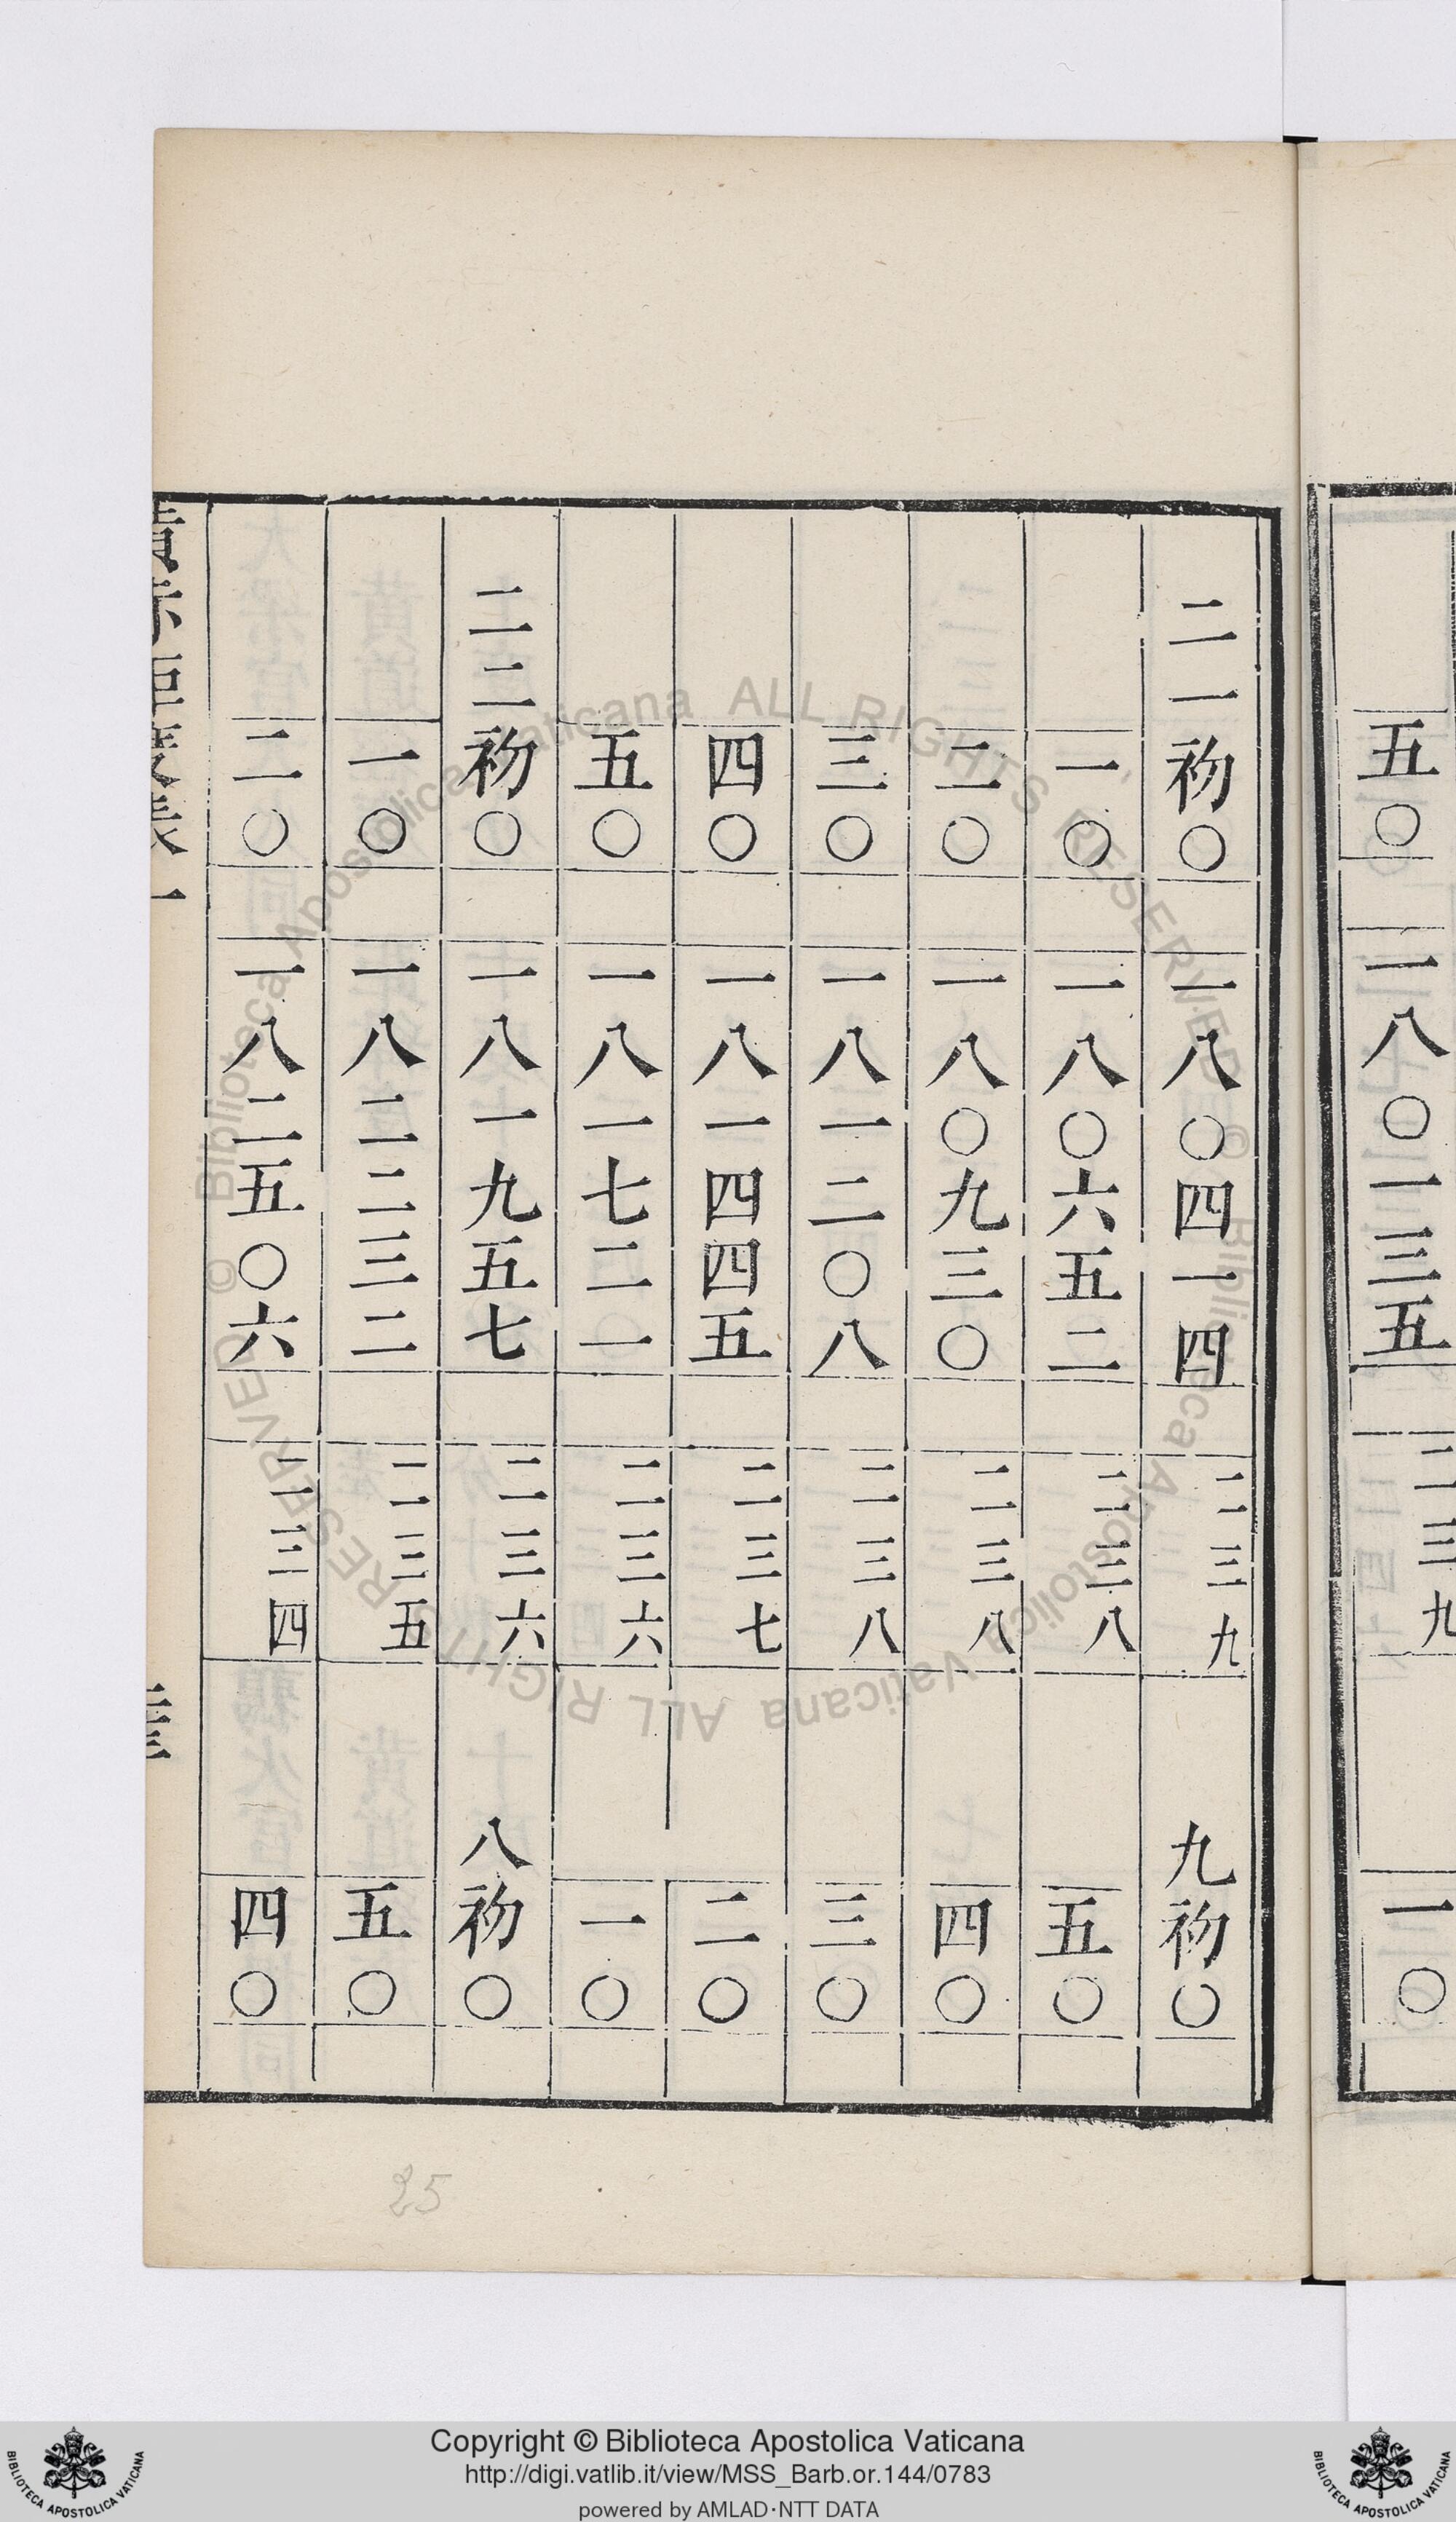 五〇 一八〇一三五 二三九 一〇
二一 初〇 一八〇四一四 二三九 九 初〇
一〇 一八〇六五二 二三八 五〇
二〇 一八〇九三〇 二三八 四〇
三〇 一八一二〇八 二三八 三〇
四〇 一八一四四五 二三七 二〇
五〇 一八一七二一 二三六 一〇
二二 初〇 一八一九五七 二三六 八 初〇
一〇 一八二二三二 二三五 五〇
二〇 一八二五〇六 二三四 四〇
25
Copyright © Biblioteca Apostolica Vaticana
http://digi.vatlib.it/view/MSS_Barb.or.144/0783
powered by AMLAD·NTT DATA